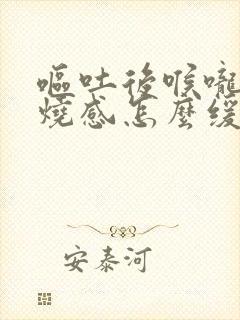 嘔吐後喉嚨
燒感怎麼緩
安泰河